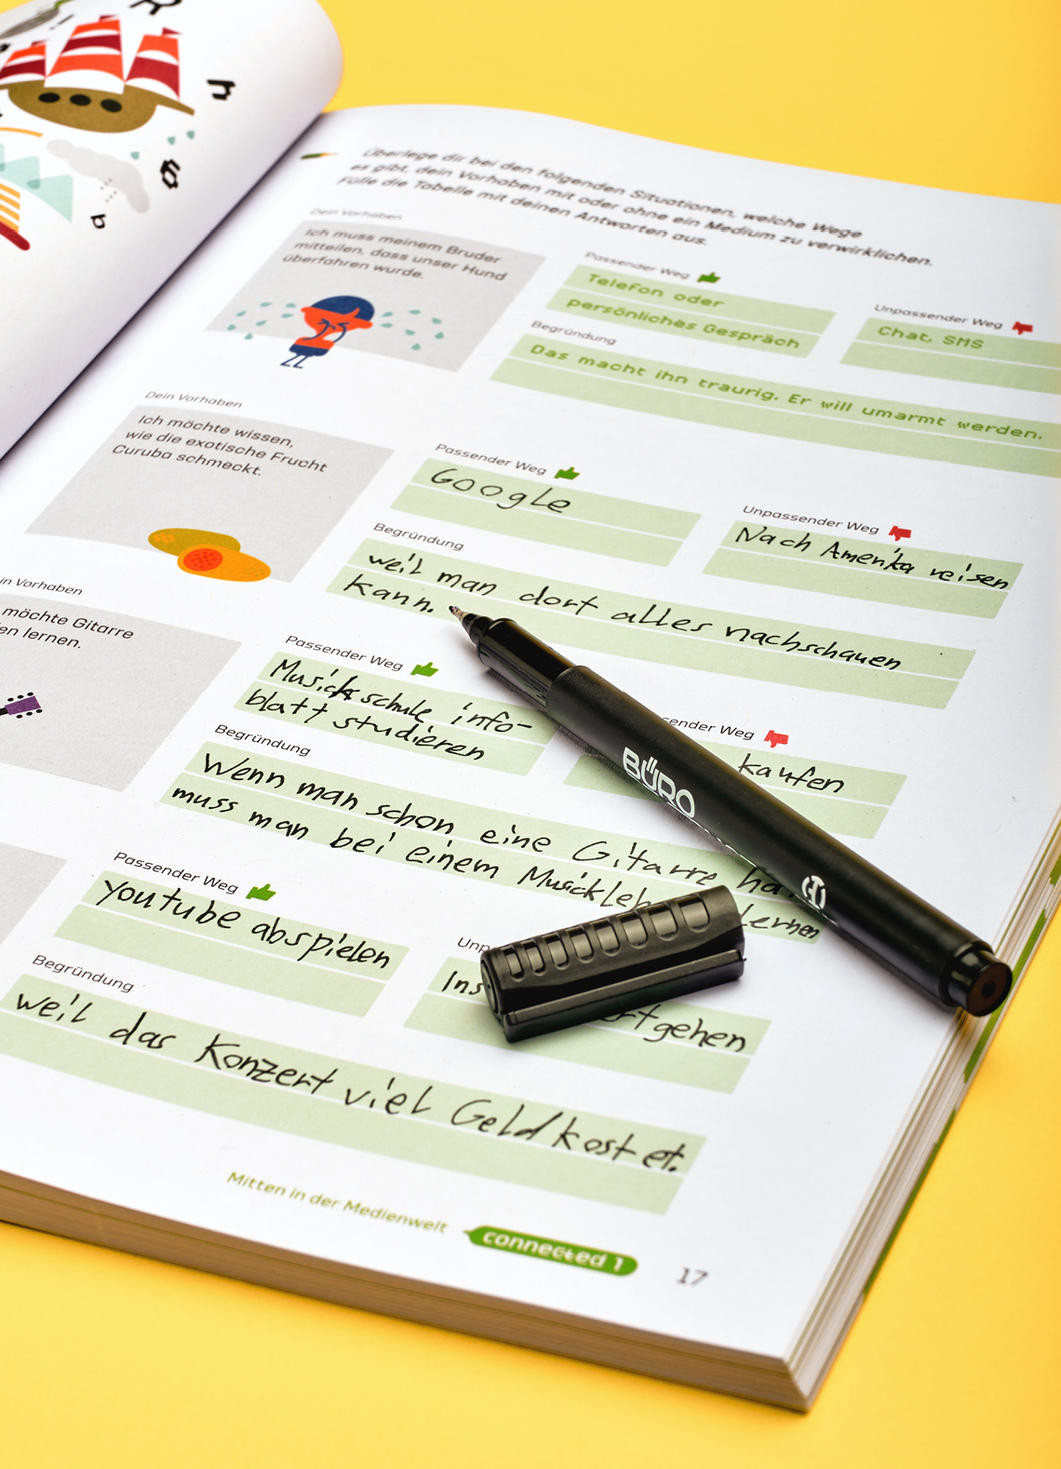 R
n
b
Überlege dir bei den folgenden Situationen, welche Wege
es gibt, dein Vorhaben mit oder ohne ein Medium zu verwirklichen.
Fülle die Tabelle mit deinen Antworten aus.
Dein Vorhaben
Ich muss meinem Bruder
mitteilen, dass unser Hund
überfahren wurde.
Passender Weg
Telefon oder
persönliches Gespräch
Unpassender Weg
Chat, SMS
Begründung
Das macht ihn traurig. Er will umarmt werden.
Dein Vorhaben
Ich möchte wissen,
wie die exotische Frucht
Curuba schmeckt.
Passender Weg
Google
Unpassender Weg
Nach Amerika reisen
Begründung
weil man dort alles nachschauen
kann.
in Vorhaben
möchte Gitarre
en lernen.
Passender Weg
Musickschule info-
blatt studieren
sender Weg
kaufen
Begründung
Wenn man schon eine Gitarre ha
muss man bei einem Musickleh lernen
Passender Weg
youtube abspielen
Unp
Ins ertgehen
Begründung
weil das Konzert viel Geld kostet.
Mitten in der Medienwelt
connected 1
17
BÜRO